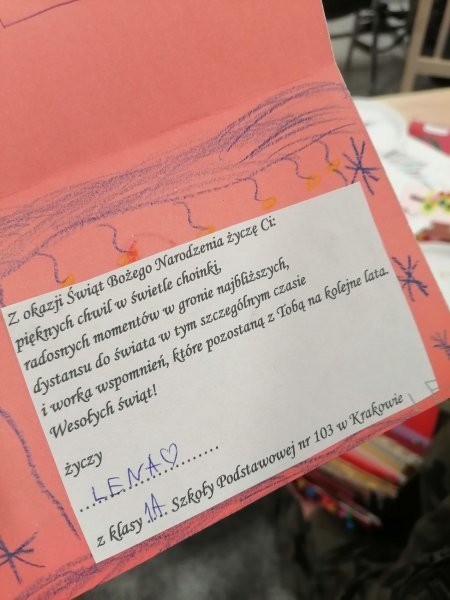 Z okazji Świąt Bożego Narodzenia życzę Ci:
pięknych chwil w świetle choinki,
radosnych momentów w gronie najbliższych,
dystansu do świata w tym szczególnym czasie
i worka wspomnień, które pozostaną z Tobą na kolejne lata.
Wesołych świąt!
życzy
LENA♡
z klasy 1A Szkoły Podstawowej nr 103 w Krakowie